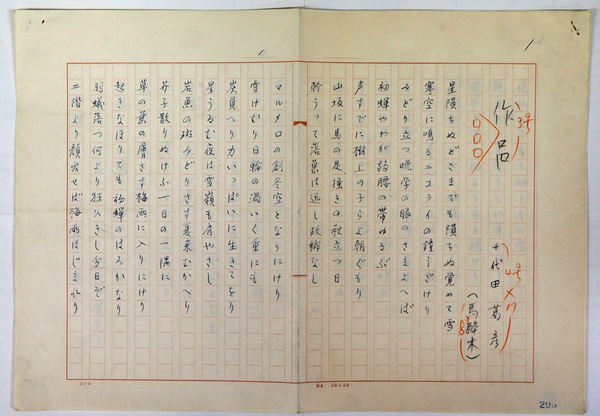 1
作品
千代田葛彦
(馬酔木)
星隕ちぬどこまでも隕ちぬ覚めて雪
寒空に鳴るニコライの鐘うごけり
みどり立つ晩学の眼のさまよへば
初蝉やわが 腰の帯ゆるぶ
声すでに樹上の子らよ朝ぐもり
山坂に馬の足掻きの秋立つ日
幹うつて落葉は迅し故郷なし
1
マルメロの創冬空となりにけり
雪けむり日輪の渦いく重にも
炭負へり力いつぱいに生きてをり
星うるむ夜は雪嶺も身やさし
岩魚の斑みどりさす夏来むかへり
芥子散りぬけふ一日の一隅に
草の葉の膚さす梅雨に入りにけり
起きなほりても初蝉のはろかなり
羽蟻落つ何より狂ひきし今日ぞ
二階より顔出せば梅雨はじまれり
20×20
290